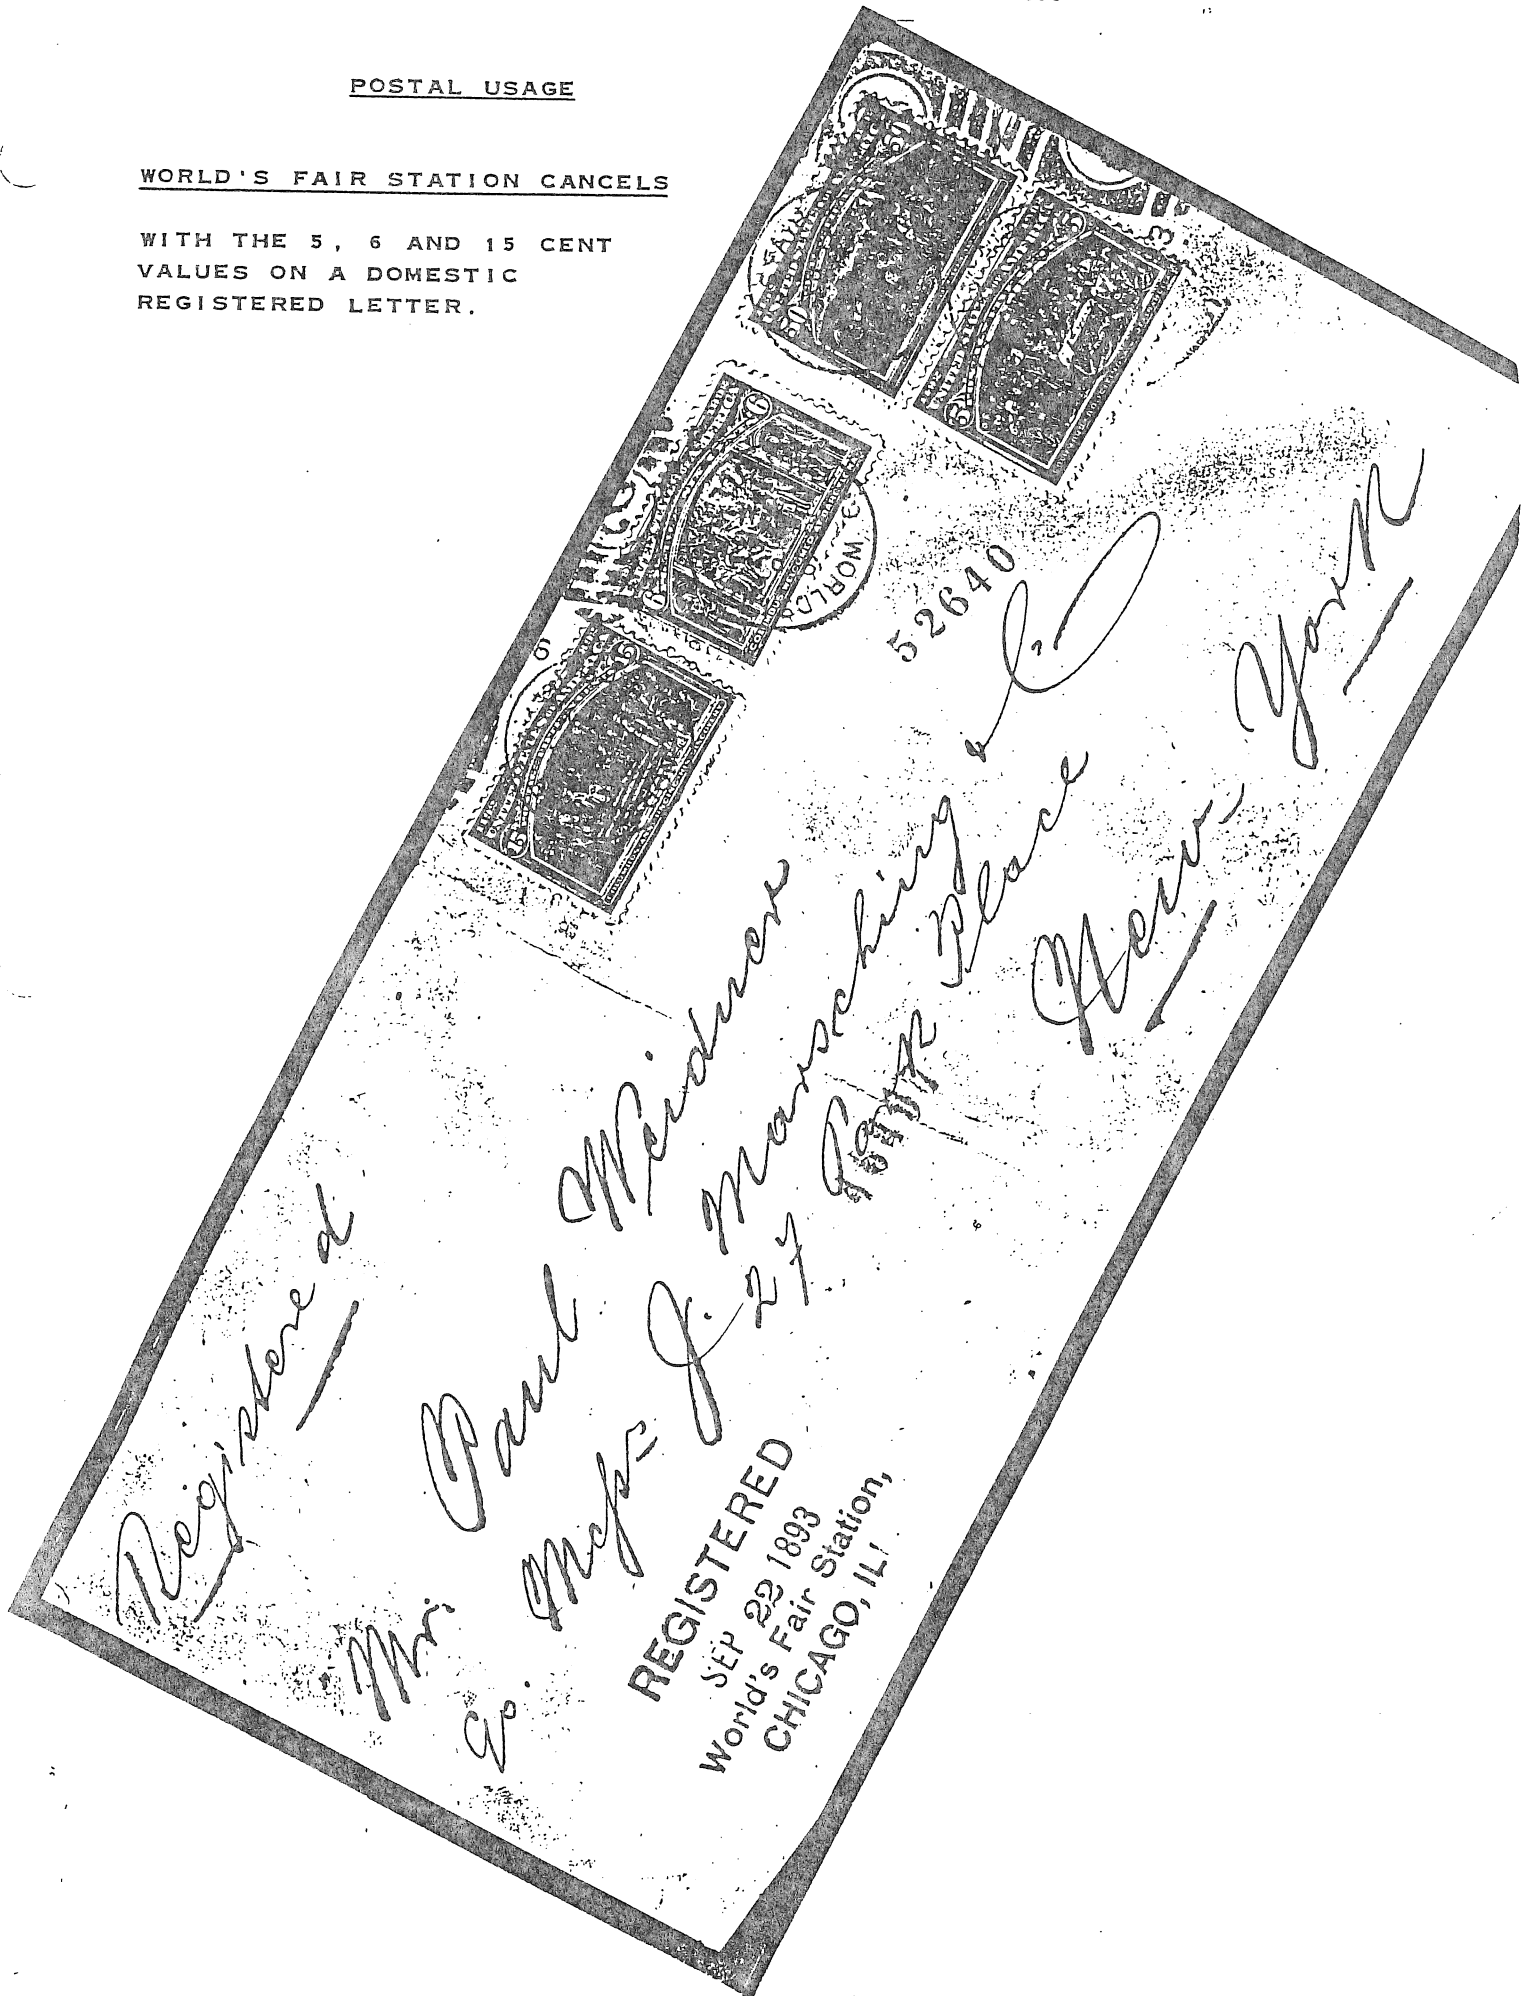 POSTAL USAGE
WORLD'S FAIR STATION CANCELS
WITH THE 5, 6 AND 15 CENT
VALUES ON A DOMESTIC
REGISTERED LETTER.
Registered
52640
Mr. Paul Weidner
J. Marsching &
27 Park Place
New York
REGISTERED
SEP 22 1893
World's Fair Station,
CHICAGO, ILL